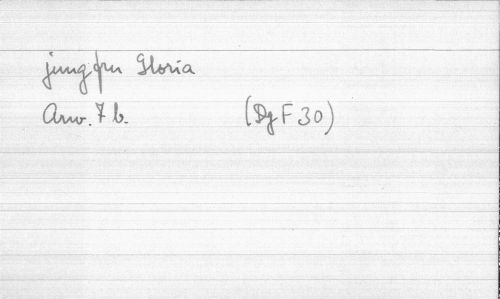 jungfru Gloria
Arw. 7 b. (DgF 30)